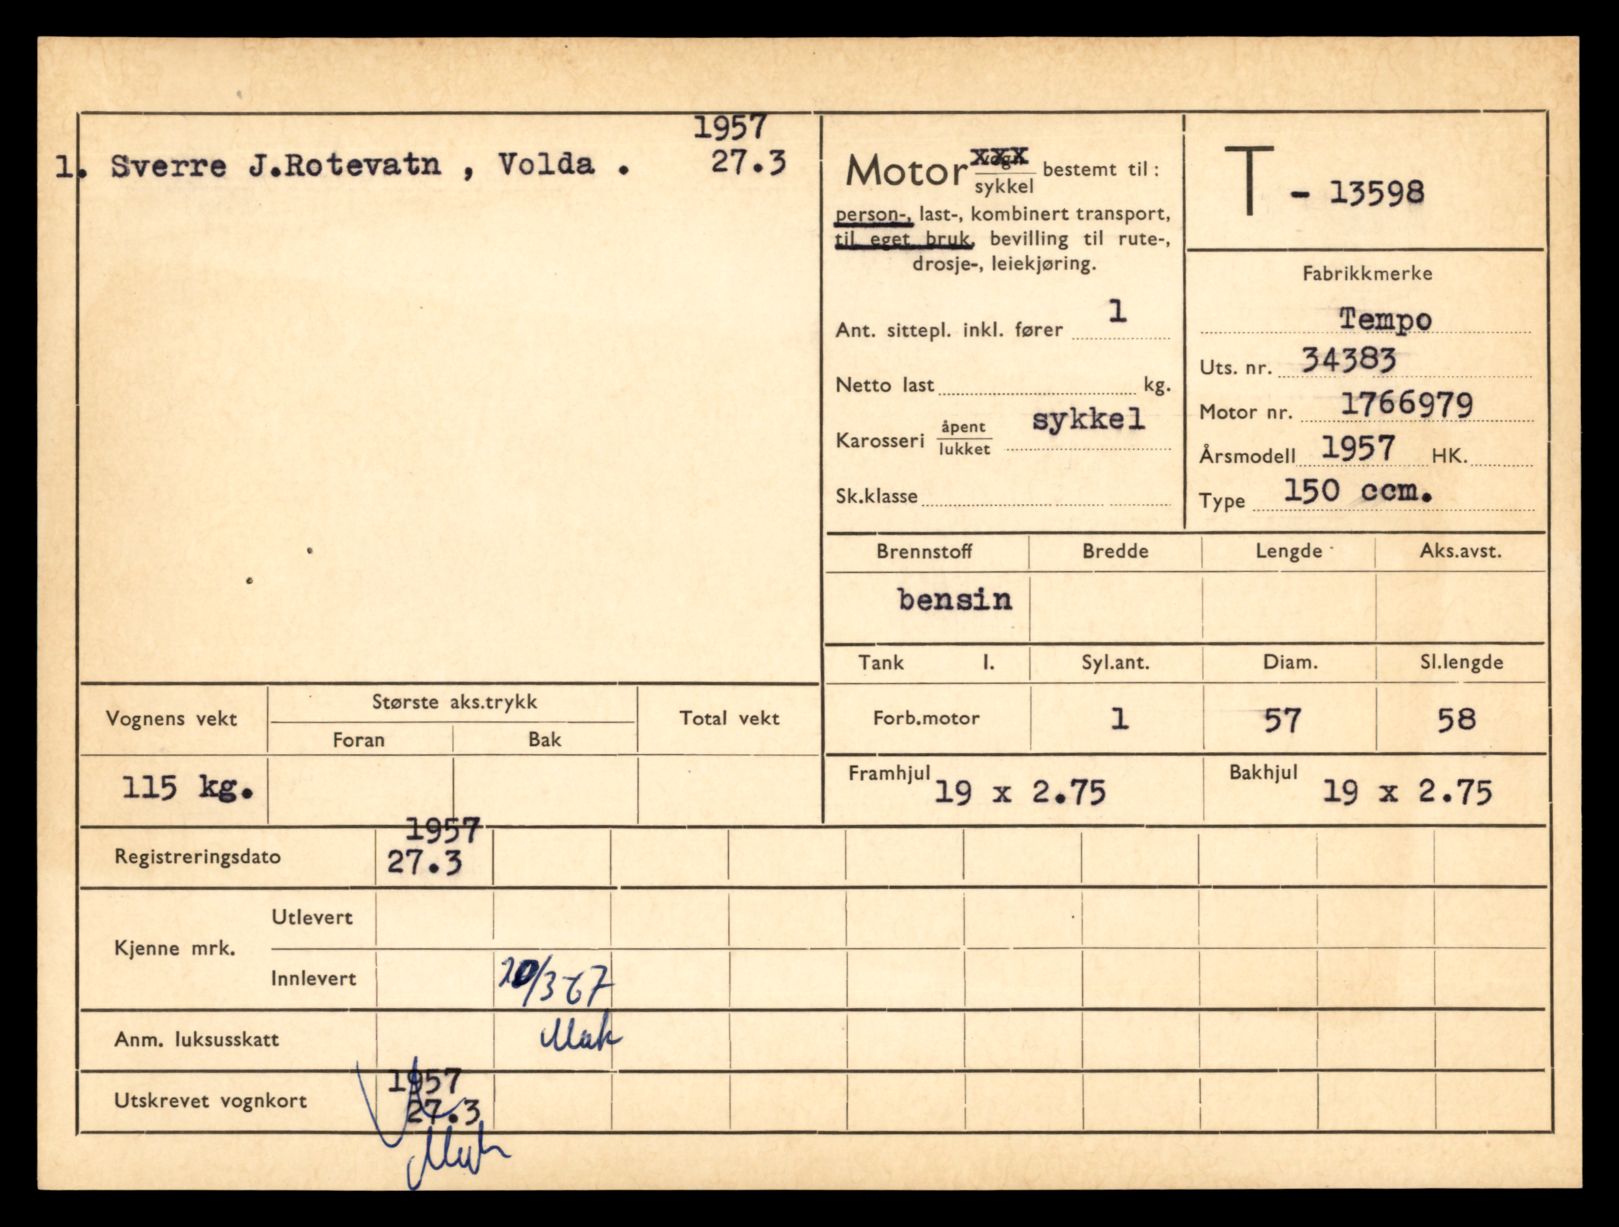 1957
1. Sverre J.Rotevatn , Volda . 27.3
Motor vogn xxx / sykkel bestemt til :
person-, last-, kombinert transport,
til eget bruk, bevilling til rute-,
drosje-, leiekjøring.
Ant. sittepl. inkl. fører 1
Netto last kg.
Karosseri åpent / lukket sykkel
Sk.klasse
T - 13598
Fabrikkmerke
Tempo
Uts. nr. 34383
Motor nr. 1766979
Årsmodell 1957 HK.
Type 150 ccm.
Brennstoff Bredde Lengde Aks.avst.
bensin
Tank l. Syl.ant. Diam. Sl.lengde
Forb.motor 1 57 58
Framhjul 19 x 2.75 Bakhjul 19 x 2.75
Vognens vekt Største aks.trykk Total vekt
Foran Bak
115 kg.
1957
Registreringsdato 27.3
Utlevert
Kjenne mrk.
Innlevert 20/3-67
Anm. luksusskatt
1957
Utskrevet vognkort 27.3